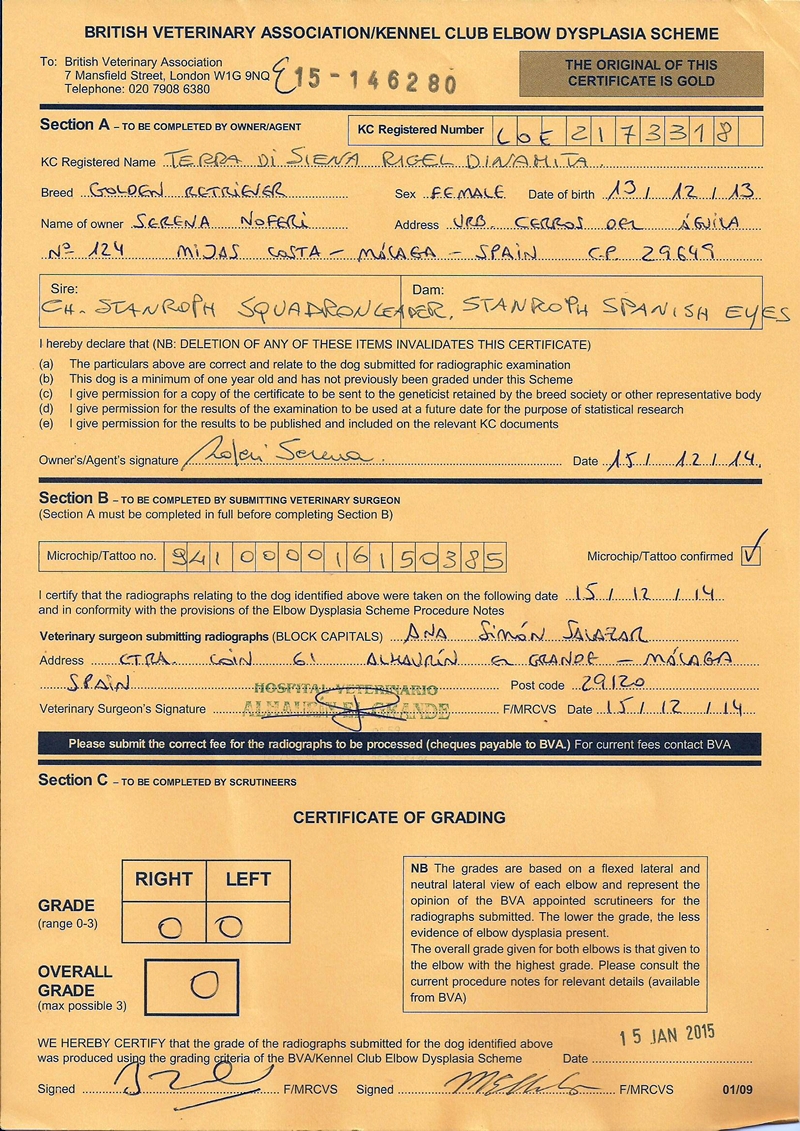 BRITISH VETERINARY ASSOCIATION/KENNEL CLUB ELBOW DYSPLASIA SCHEME
To: British Veterinary Association
7 Mansfield Street, London W1G 9NQ
Telephone: 020 7908 6380
E15-146280
THE ORIGINAL OF THIS
CERTIFICATE IS GOLD
Section A – TO BE COMPLETED BY OWNER/AGENT
KC Registered Number LOE 2173318
KC Registered Name TERRA DI SIENA RIGEL DINAMITA
Breed GOLDEN RETRIEVER Sex FEMALE Date of birth 13/12/13
Name of owner SERENA NOFERI Address URB. CERROS DEL ÁGUILA
Nº 124 MIJAS COSTA – MÁLAGA – SPAIN C.P. 29649
Sire: Dam:
CH. STANROPH SQUADRONLEADER, STANROPH SPANISH EYES
I hereby declare that (NB: DELETION OF ANY OF THESE ITEMS INVALIDATES THIS CERTIFICATE)
(a) The particulars above are correct and relate to the dog submitted for radiographic examination
(b) This dog is a minimum of one year old and has not previously been graded under this Scheme
(c) I give permission for a copy of the certificate to be sent to the geneticist retained by the breed society or other representative body
(d) I give permission for the results of the examination to be used at a future date for the purpose of statistical research
(e) I give permission for the results to be published and included on the relevant KC documents
Owner's/Agent's signature Noferi Serena Date 15/12/14
Section B – TO BE COMPLETED BY SUBMITTING VETERINARY SURGEON
(Section A must be completed in full before completing Section B)
Microchip/Tattoo no. 941000016150385 Microchip/Tattoo confirmed ✓
I certify that the radiographs relating to the dog identified above were taken on the following date 15/12/14
and in conformity with the provisions of the Elbow Dysplasia Scheme Procedure Notes
Veterinary surgeon submitting radiographs (BLOCK CAPITALS) ANA SIMÓN SALAZAR
Address CTRA. COIN 61 ALHAURÍN EL GRANDE – MÁLAGA
SPAIN Post code 29120
HOSPITAL VETERINARIO
ALHAURIN EL GRANDE
Veterinary Surgeon's Signature F/MRCVS Date 15/12/14
Please submit the correct fee for the radiographs to be processed (cheques payable to BVA.) For current fees contact BVA
Section C – TO BE COMPLETED BY SCRUTINEERS
CERTIFICATE OF GRADING
RIGHT LEFT
GRADE
(range 0-3)
0 0
OVERALL
GRADE
(max possible 3)
0
NB The grades are based on a flexed lateral and
neutral lateral view of each elbow and represent the
opinion of the BVA appointed scrutineers for the
radiographs submitted. The lower the grade, the less
evidence of elbow dysplasia present.
The overall grade given for both elbows is that given to
the elbow with the highest grade. Please consult the
current procedure notes for relevant details (available
from BVA)
WE HEREBY CERTIFY that the grade of the radiographs submitted for the dog identified above
was produced using the grading criteria of the BVA/Kennel Club Elbow Dysplasia Scheme Date 15 JAN 2015
Signed F/MRCVS Signed F/MRCVS 01/09